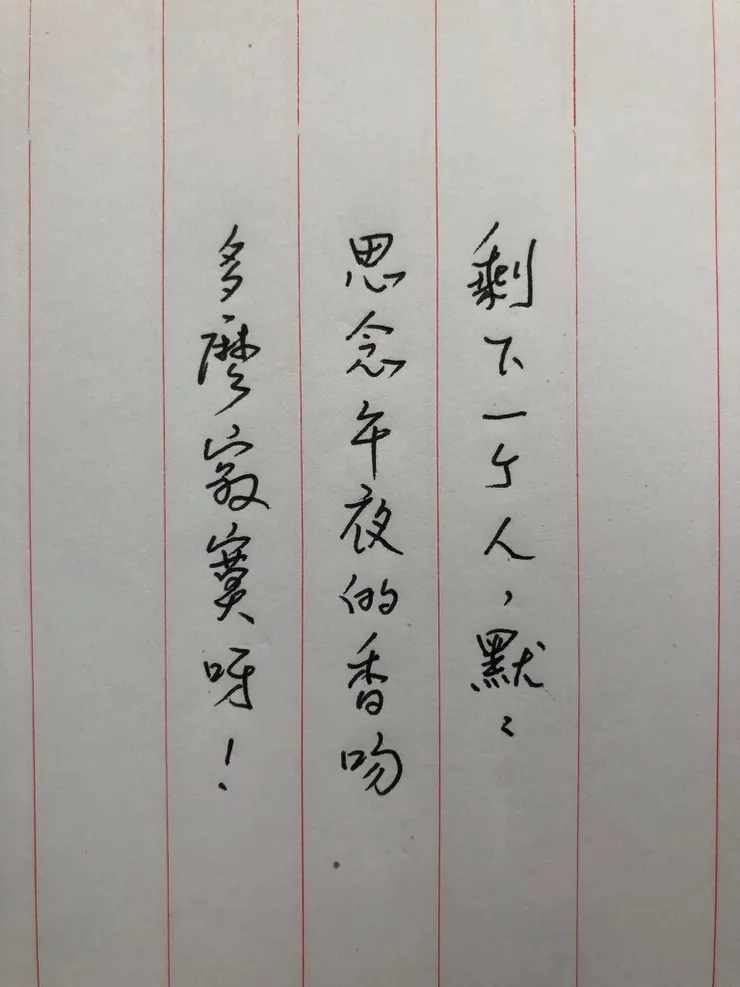 剩下一个人，默〻
思念午夜的香吻
多麼寂寞呀！